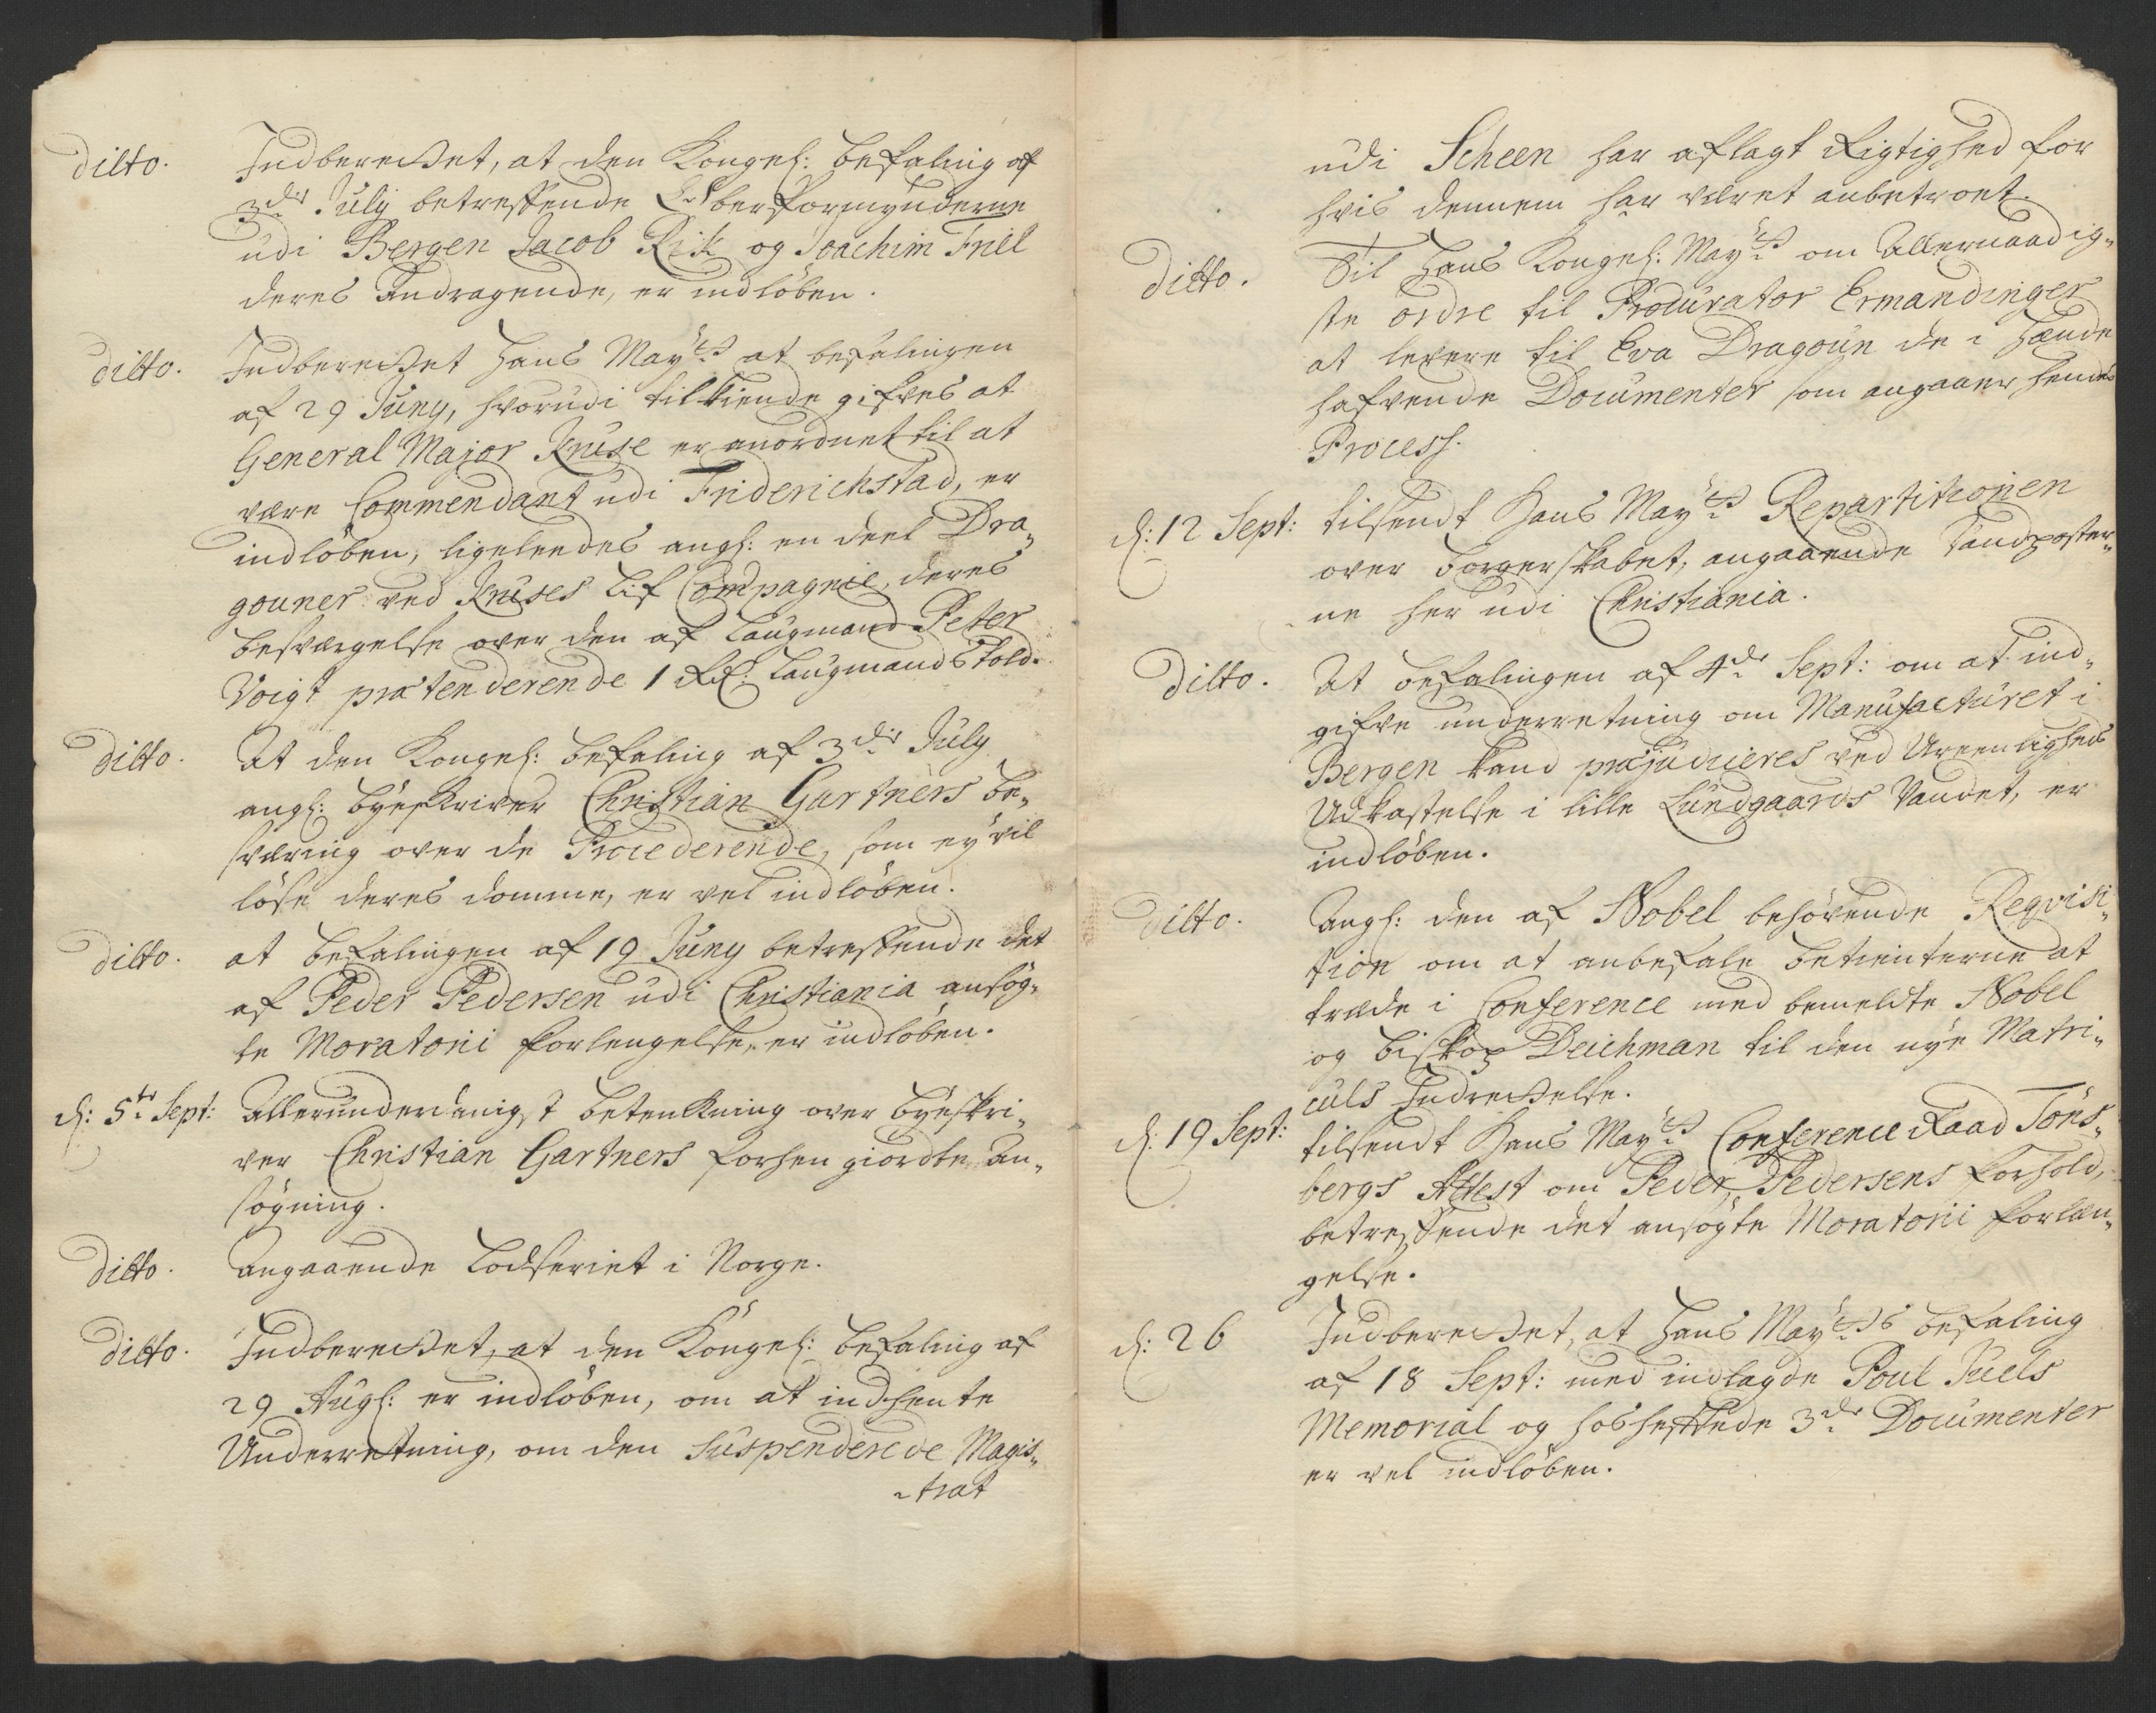 ditto. Indberettet, at den Kongel: befaling af
3die July betreffende Oberformynderne
udi Bergen Jacob Rik og Joachim Friil
deres Andragende, er indlöben.
ditto. Indberettet Hans Mayts at befalingen
af 29 Juny, hvorudi tilkiende gifves at
General Major Kruse er anordnet til at
være Commendant udi Friderichstad, er
indlöben, ligeleedes angl: en deel Dra„
gouner ved Kruses Lif Compagnie, deres
besværgelse over den af Laugmand Peter
Voigt prætenderende 1 Rd: Laugmands Told.
ditto. At den Kongel: befaling af 3die July
angl: byeskriver Christian Gartners be„
sværing over de Procederende, som ey vil
löse deres domme, er vel indlöben.
ditto. at befalingen af 19 Juny betreffende det
af Peder Pedersen udi Christiania ansög„
te Moratorii forlengelse, er indlöben.
d: 5te Sept: Allerunderdanigst betenkning over byeskri„
ver Christian Gartners forhen giordte An„
søgning.
ditto. Angaaende Lodseriet i Norge.
ditto. Indberettet, at den Kongel: befaling af
29 Aug: er indlöben, om at indhente
Underretning, om den Suspenderede Magis„
trat
udi Scheen har aflagt Rigtighed for
hvis dennem har været anbetroet.
ditto. Til Hans Kongel: Mayts om Allernaadig„
ste ordre til Procurator Ermandinger
at levere til Eva Dragoun de i hænde
hafvende Documenter som angaaer hendes
Process.
d: 12 Sept: tilsendt Hans Mayts Repartitionen
over borgerskabet, angaaende Vandposter„
ne her udi Christiania.
ditto. At befalingen af 4de Sept: om at ind„
gifve underretning om Manufacturet i
Bergen kand præjudiceres ved Ureenligheds
Udkastelse i lille Lundgaards Vandet, er
indlöben.
ditto. Angl: den af Nobel behövende Reqvisi„
tion om at anbefale betienterne at
træde i Conference med bemeldte Nobel
og biskop Deichman til den nye Matri„
culs Indrettelse.
d: 19 Sept: tilsendt Hans Mayts Conference Raad Töns„
bergs Attest om Peder Pedersens forhold,
betreffende det ansögte Moratorii forlæn„
gelse.
d: 26 Indberettet, at Hans Mayts befaling
af 18 Sept: med indlagde Poul Juels
Memorial og hoshæftede 3de Documenter
er vel indlöben.